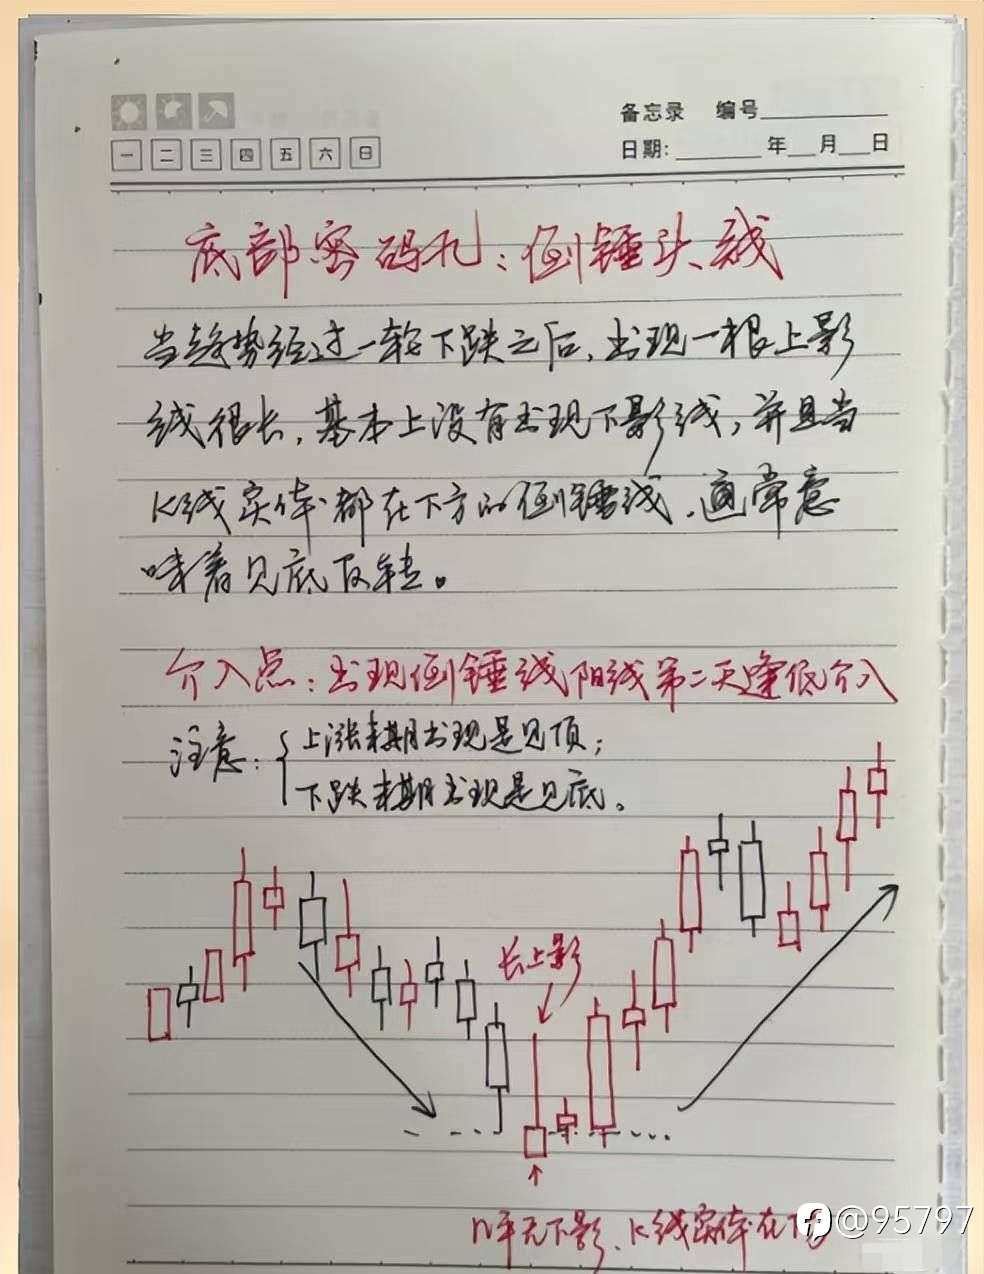 备忘录 编号
一 二 三 四 五 六 日
日期: 年 月 日
底部密码九:倒锤头线
当趋势经过一轮下跌之后,出现一根上影
线很长,基本上没有出现下影线,并且当
K线实体都在下方的倒锤线,通常意
味着见底反转。
介入点:出现倒锤线阳线第二天逢低介入
注意:
上涨末期出现是见顶;
下跌末期出现是见底。
长上影
几乎无下影、K线实体在下方
@95797